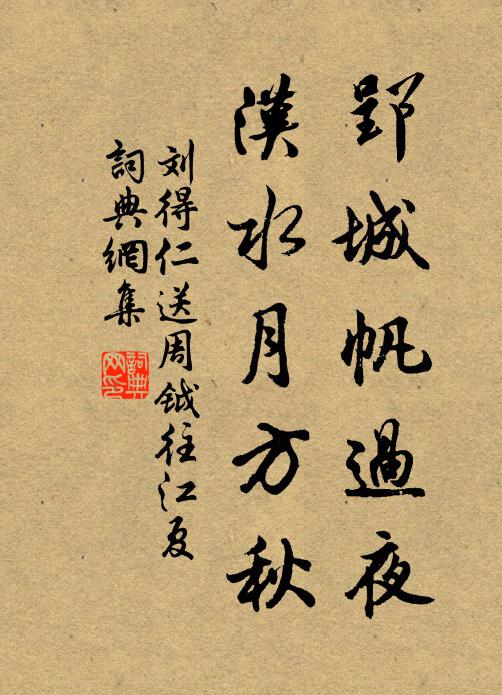 郢城帆過夜
漢水月方秋
刘得仁送周钺往江夏
詞典網集
詞典网印